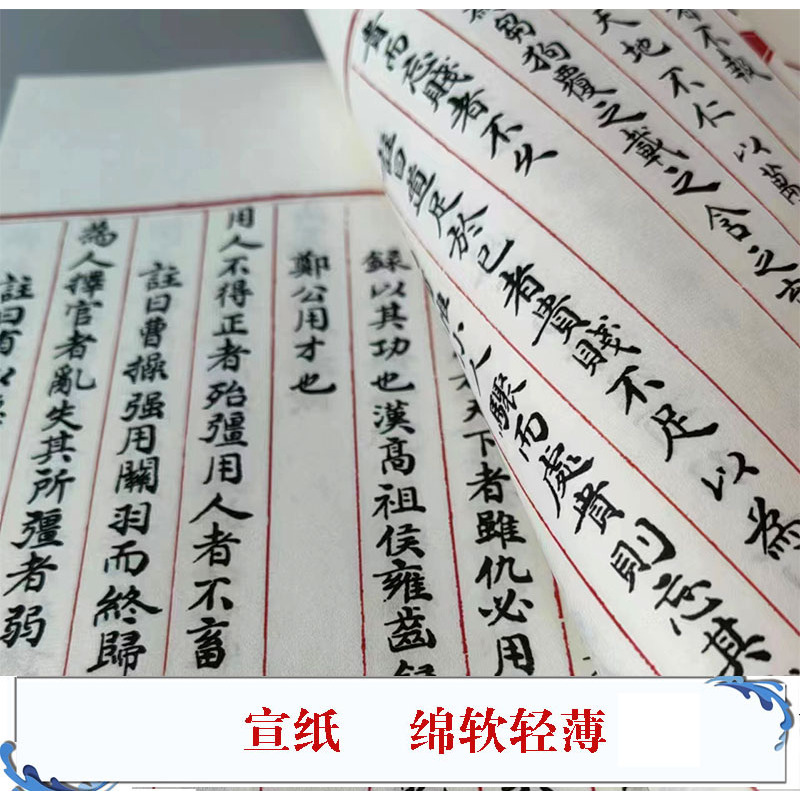 天地不仁以萬
芻狗覆之載之含之
貴而忘賤者不久
註曰道足於己者貴賤不足以為
小人驟而處貴則忘其
天下者雖仇必用
録以其功也漢高祖侯雍齒録
鄭公用才也
用人不得正者殆彊用人者不畜
註曰曹操强用關羽而終歸
為人擇官者亂失其所彊者弱
註曰有以
宣纸 绵软轻薄